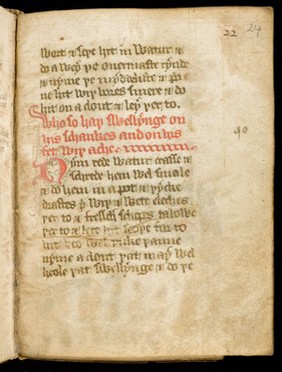 22 24
wort & seþe hit in watur &
do a wey þe ouermaste rynde
& nyme þe myddaliste & po
ne hit wiþ bores smere & do
hit on a clout & ley þer to.
Who so haþ swellynge on
his schankes and on his
fet wiþ ache
90
Nym rede watur crasse &
schrede hem wel smale
& do hem in a pot &
þ wyn & wete cleches
þer to & fresch schepis talowe
þer to & lete hit seþe for to
hit beo wel þikke þanne
nyme a clout þat may wel
heole þat swellynge & do þe